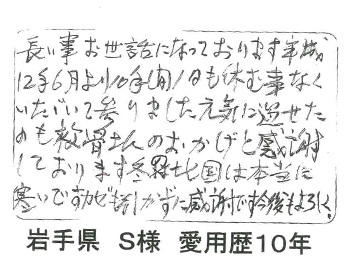 長い事お世話になっております平成
12年6月より10年(間)1日も休む事なく
いただいて参りました元気に過せた
のも救骨さんのおかげと感謝
しております冬北国は本当に
寒いですカゼも引かずに感謝です今後もよろしく
岩手県 S様 愛用歴10年